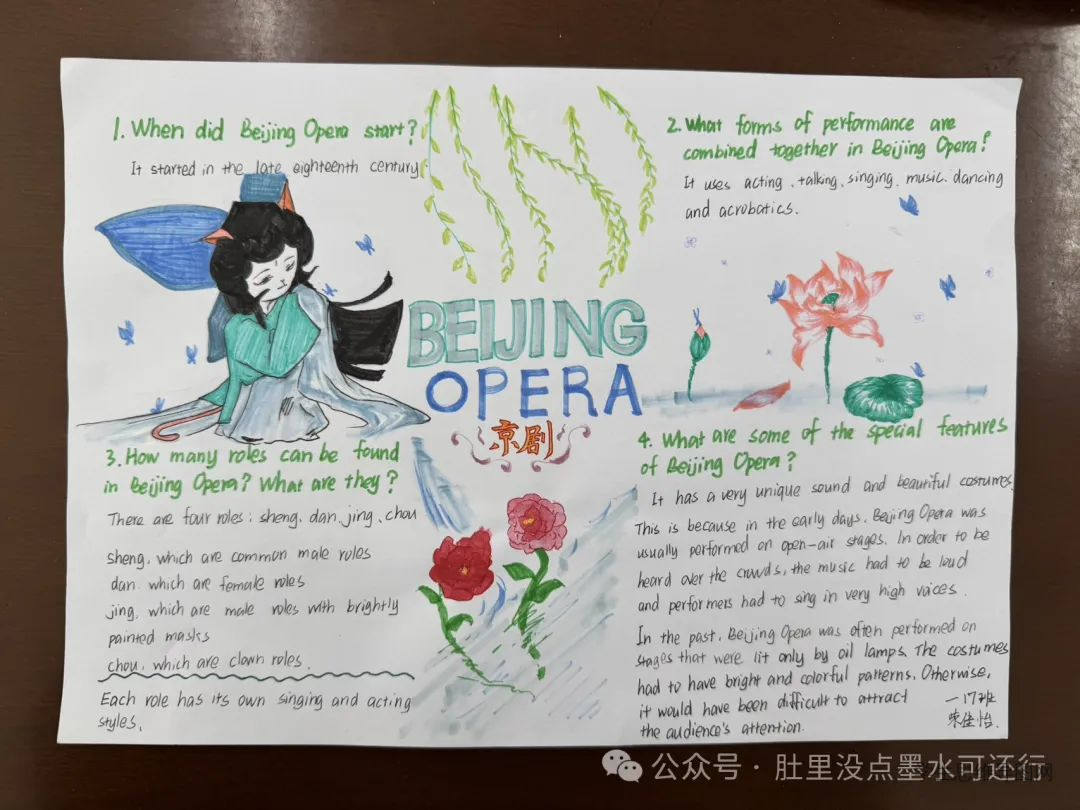 1. When did Beijing Opera start?
It started in the late eighteenth century
2. What forms of performance are
combined together in Beijing Opera?
It uses acting、talking、singing、music、dancing
and acrobatics.
BEIJING
OPERA
京剧
3. How many roles can be found
in Beijing Opera? What are they?
There are four roles: sheng、dan、jing、chou
sheng, which are common male roles
dan, which are female roles
jing, which are male roles with brightly
painted masks
chou, which are clown roles.
Each role has its own singing and acting
styles.
4. What are some of the special features
of Beijing Opera?
It has a very unique sound and beautiful costumes.
This is because in the early days, Beijing Opera was
usually performed on open-air stages. In order to be
heard over the crowds, the music had to be loud
and performers had to sing in very high voices.
In the past, Beijing Opera was often performed on
stages that were lit only by oil lamps. The costumes
had to have bright and colorful patterns. Otherwise,
it would have been difficult to attract
the audience's attention.
一17班
佳怡
公众号·肚里没点墨水可还行